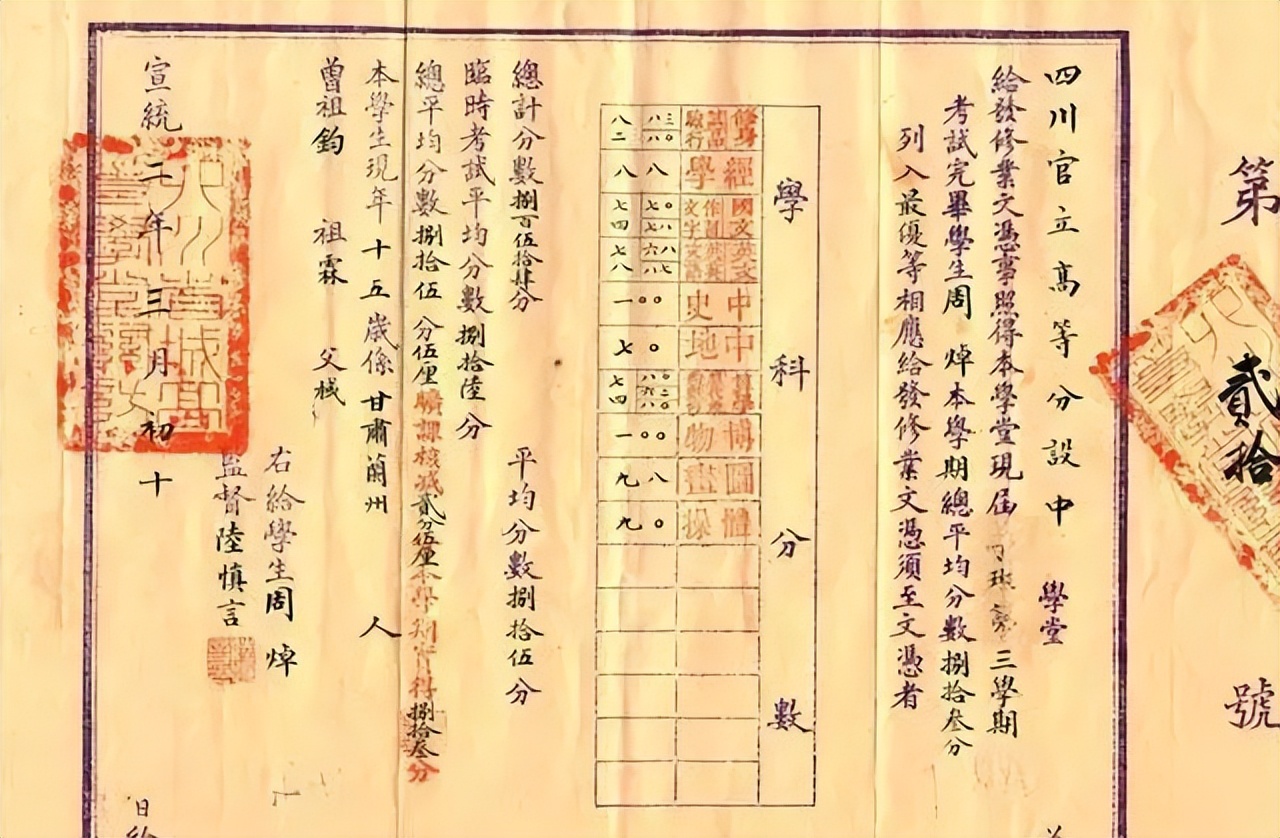 第貳拾號
四川官立高等分設中學堂
給發修業文憑事照得本學堂現屆三學期
考試完畢學生周焯本學期總平均分數捌拾叁分
列入最優等相應給發修業文憑須至文憑者
學科分數
修身 品行 三〇 八八 八二
經學 八八
國文 作文 七〇 七八 七四
英文 六八 八七 七八
中史 一〇〇
中地 七〇
算學 七四
博物 一〇〇
圖畫 九八
體操 九〇
總計分數捌百伍拾肆分 平均分數捌拾伍分
臨時考試平均分數捌拾陸分
總平均分數捌拾伍分伍厘曠課核減貳分伍厘本學期實得捌拾叁分
本學生現年十五歲係甘肅蘭州人
曾祖鈞 祖霖 父棫
右給學生周焯
監督陸慎言
宣統二年三月初十
日給